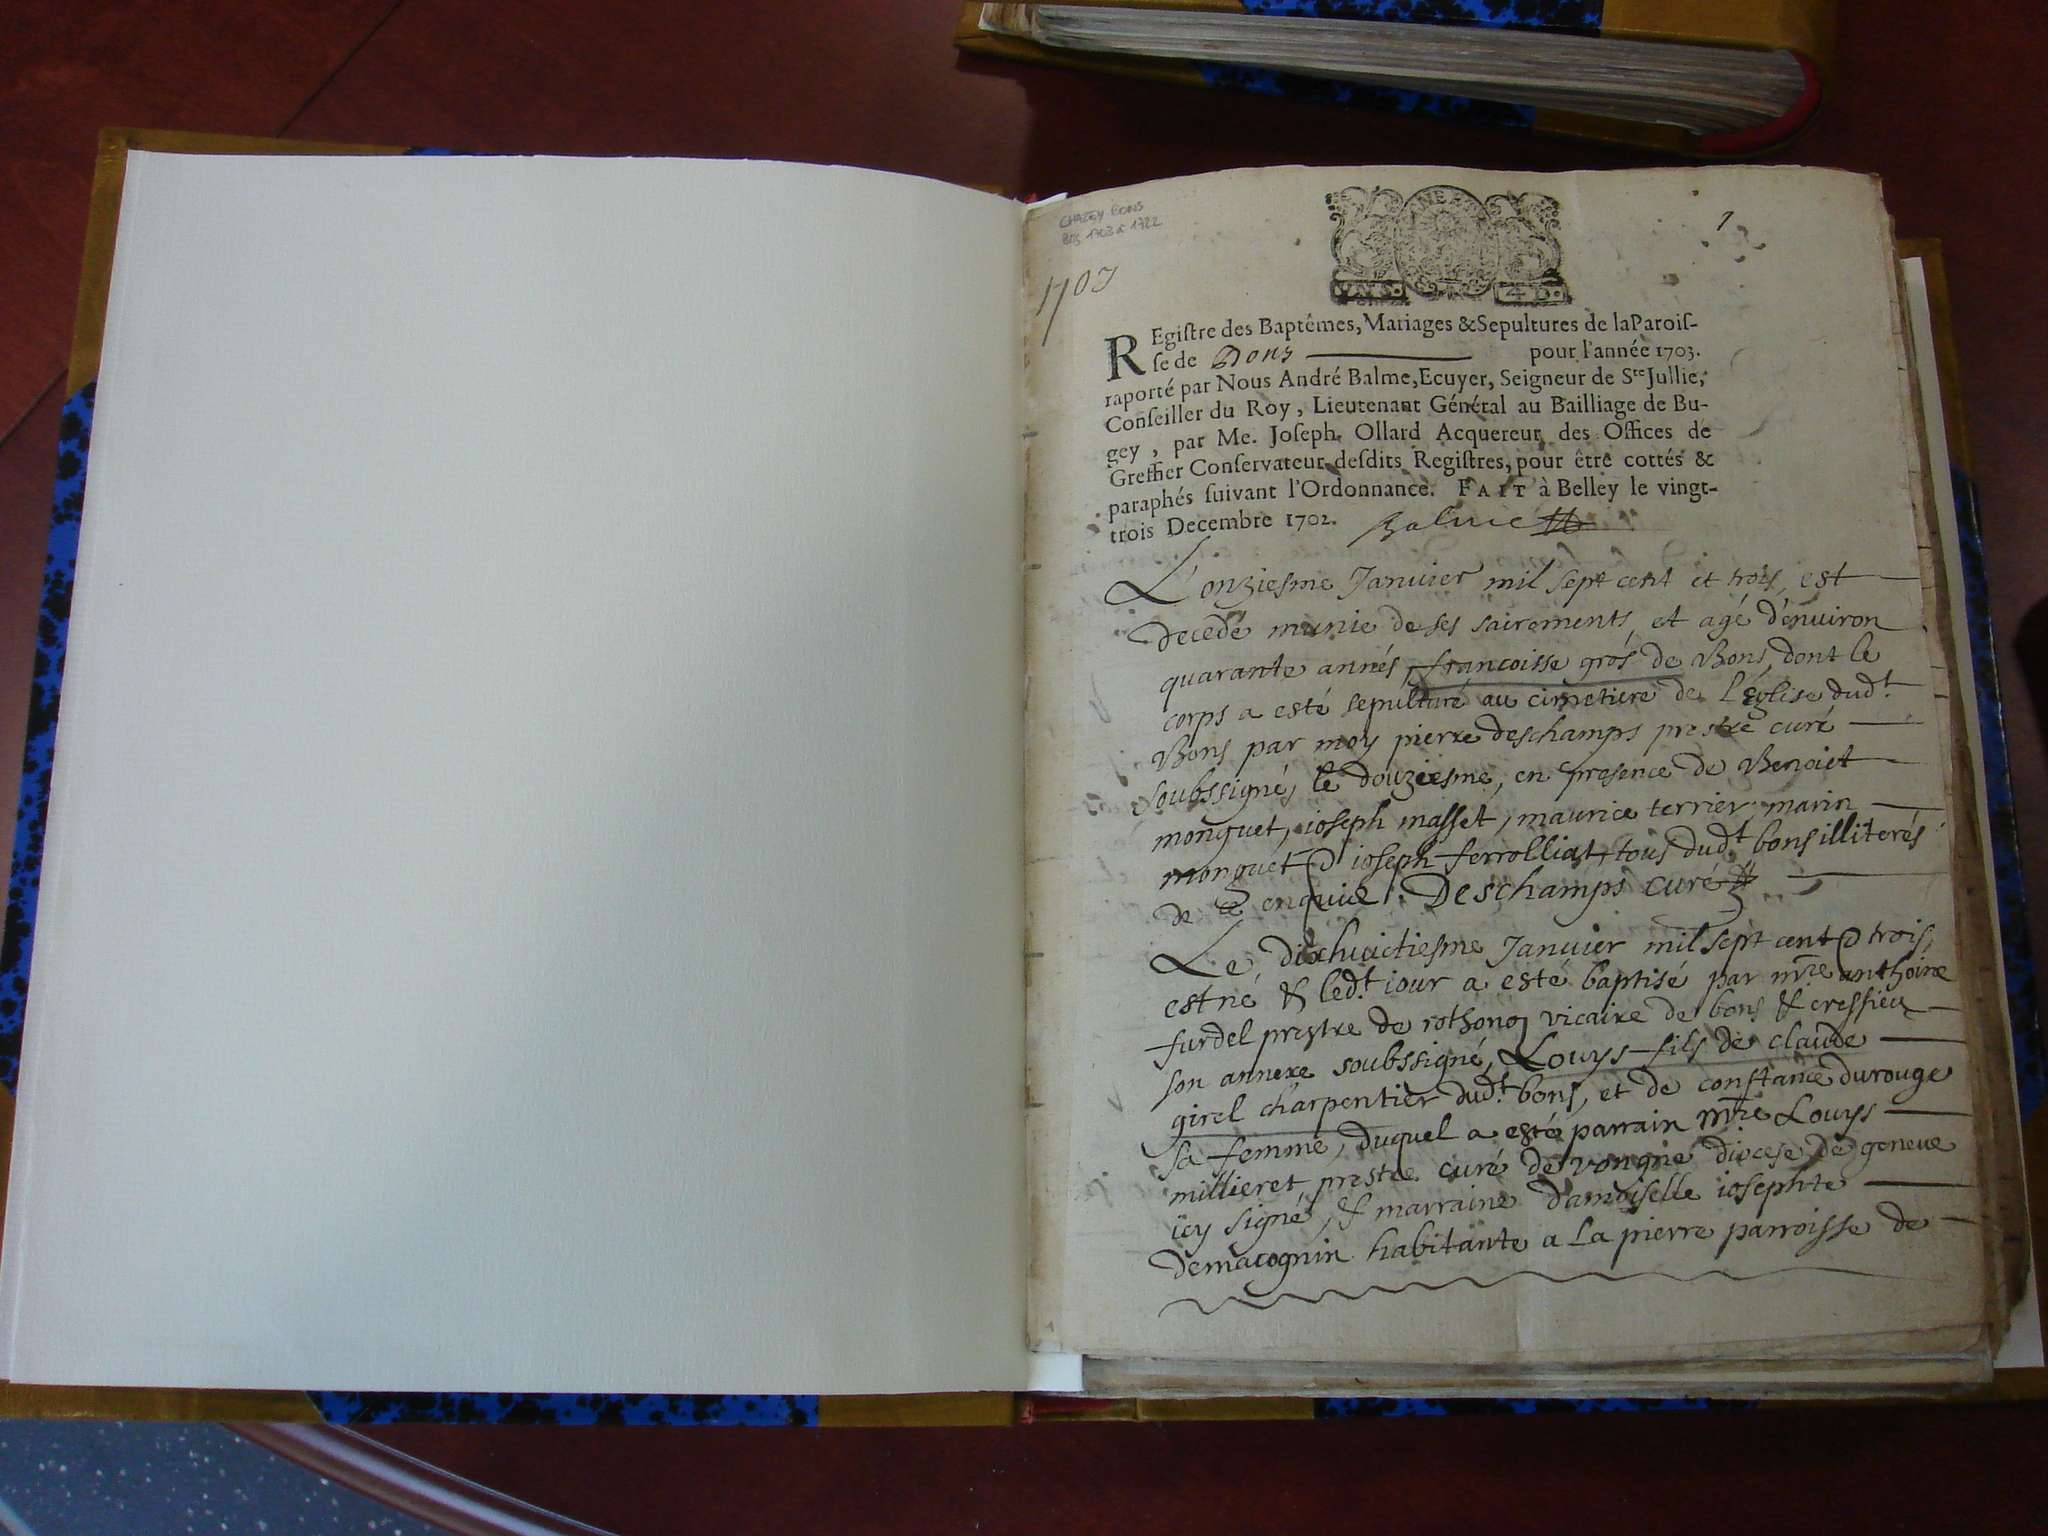 CHAZEY BONS
BMS 1703 à 1722
1703
1
REgiſtre des Baptêmes, Mariages & Sepultures de la Paroiſ-
ſe de Bons pour l'année 1703.
raporté par Nous André Balme, Ecuyer, Seigneur de Ste Jullie,
Conſeiller du Roy, Lieutenant Général au Bailliage de Bu-
gey, par Me. Joſeph Ollard Acquereur des Offices de
Greffier Conſervateur deſdits Regiſtres, pour être cottés &
paraphés ſuivant l'Ordonnance. FAIT à Belley le vingt-
trois Decembre 1702. Balme
L'onziesme Januier mil sept cent et trois, est
decedé munie de ses sairements, et agé d'enuiron
quarante annés, francoisse gros de Bons, dont le
corps a esté sepulturé au cimetiere de L'église dud.t
Bons par moy pierre deschamps prestre curé
soubssigné, le douziesme, en presence de Benoict
monguet, ioseph masset, maurice terrier, marin
monguet & ioseph ferrolliat, tous dud.t bons illiterés
de ce enquis. Deschamps curé
Le dixhuictiesme Januier mil sept cent & trois,
est né & led.t iour a esté baptisé par mre anthoine
furdel prestre de rothonoz vicaire de bons & cressieu
son annexe soubssigné, Louys fils de claude
girel charpentier dud.t bons, et de constance durouge
sa femme, duquel a esté parrain mre Louys
millieret prestre curé de vongne diocese de geneue
icy signé, & marraine damoiselle iosephte
demacognin habitante a La pierre parroisse de